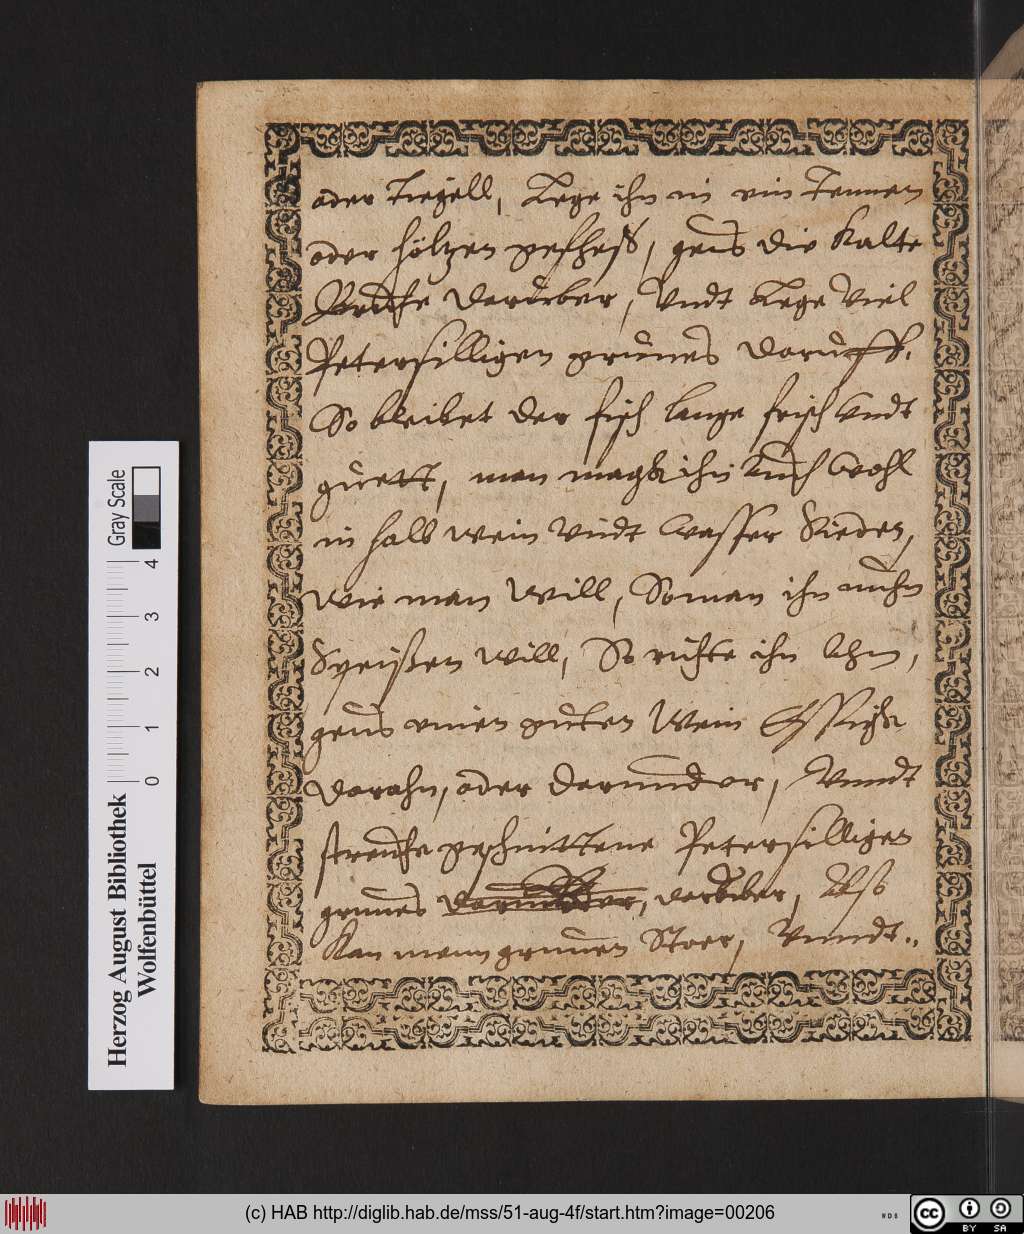 oder Tiegell, Lege ihn in ein Tennen
oder höltzen geschess, geus die Kalte
Brüche darüeber, Vndt Lege Viel
Petersilligen grünes darüff.
So bleibet der fisch lange frisch Vndt
guett, man magk ihn auch Wohl
in halb wein Vndt Wasser Sieden,
wie man Will, So man ihn nuhn
Speißen will, So richte ihn ahn,
geus einen guten Wein Essigk
darahn, oder darundter, Vnndt
streuhe geschnittene Petersilliges
grunes darüeber,
Kan mann grunen Stoer, Vnndt
Gray Scale
0 1 2 3 4
Herzog August Bibliothek
Wolfenbüttel
(c) HAB http://diglib.hab.de/mss/51-aug-4f/start.htm?image=00206
WDB
cc BY SA